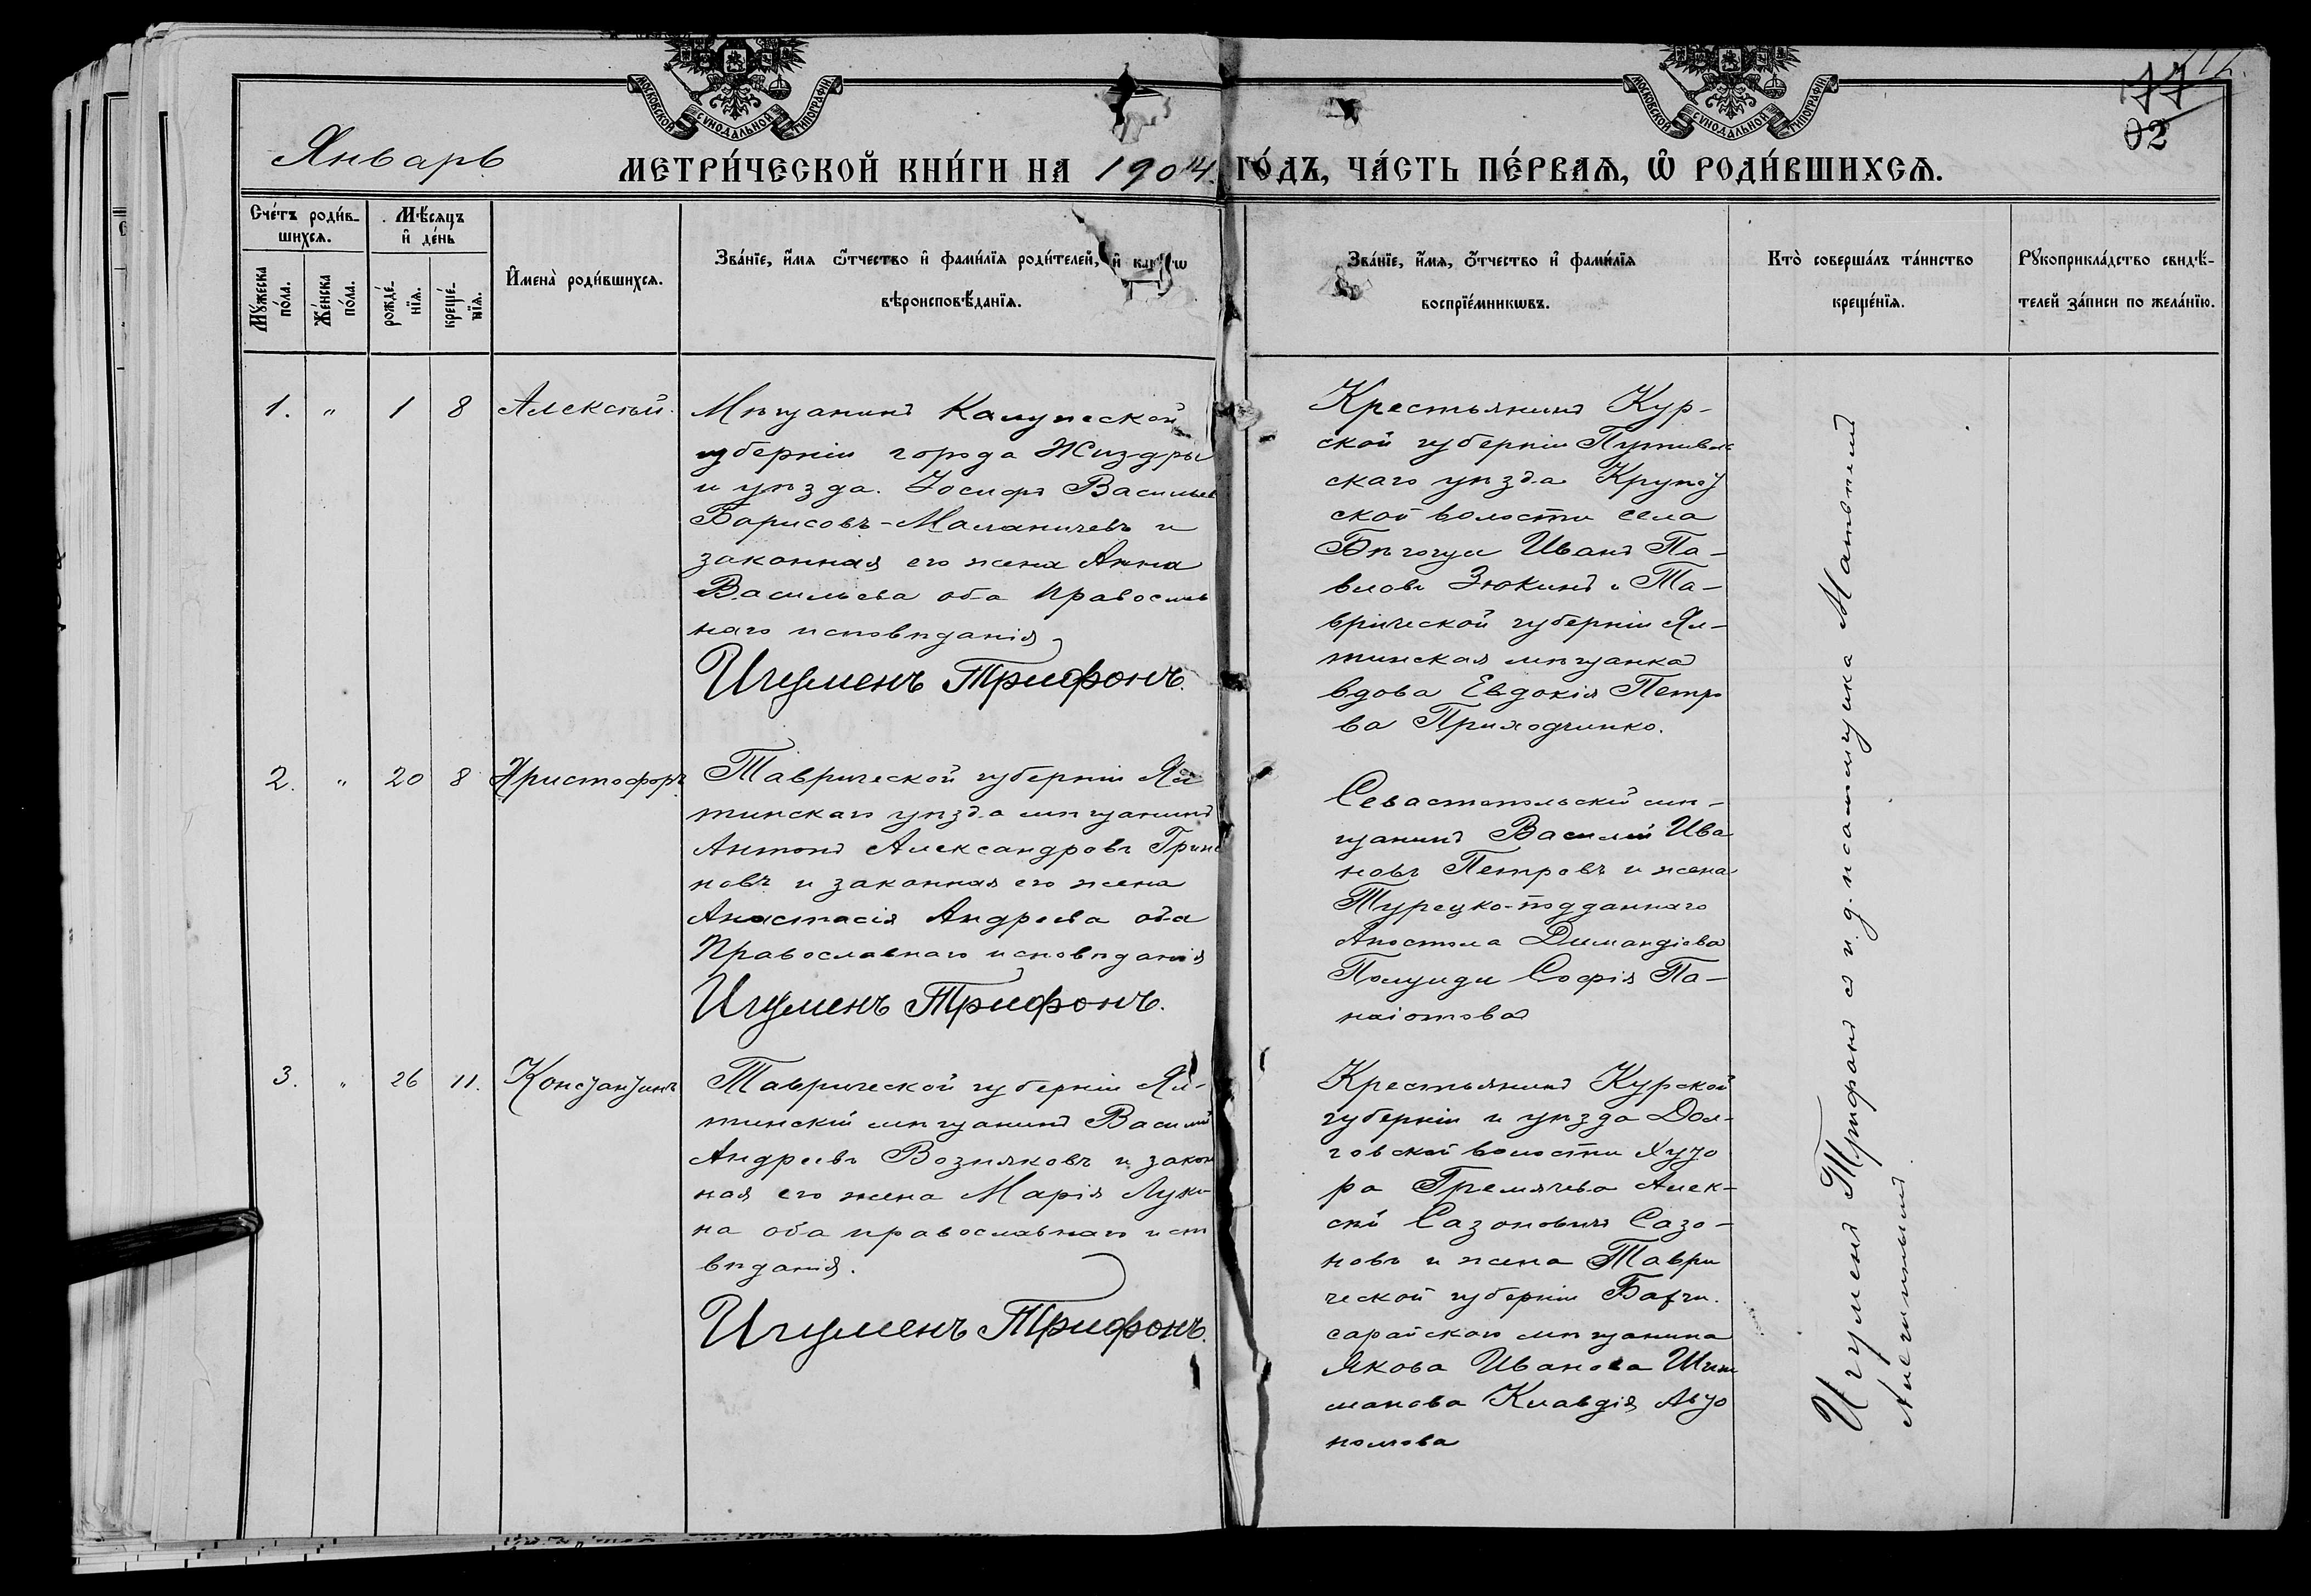 МОСКОВСКОЙ СѴНОДАЛЬНОЙ ТИПОГРАФІИ
МОСКОВСКОЙ СѴНОДАЛЬНОЙ ТИПОГРАФІИ
77
92
Январь
МЕТРИ́ЧЕСКОЙ КНИ́ГИ НА 1904 ГО́ДЪ, ЧА́СТЬ ПЕ́РВАѦ, Ѿ РОДИ́ВШИХСѦ.
Сче́тъ роди́в-
шихсѧ.
Мѣ́сѧцъ
и҆ де́нь
Мꙋ́жеска по́ла.
Же́нска по́ла.
рожде́-нїѧ.
креще́-нїѧ.
И҆мена̀ роди́вшихсѧ.
Зва́нїе, и҆́мѧ ѻ҆́тчество и҆ фами́лїѧ роди́телей, и҆ како́гѡ
вѣроисповѣ́данїѧ.
Зва́нїе, и҆́мѧ, ѻ҆́тчество и҆ фами́лїѧ
воспрїе́мникѡвъ.
Кто̀ соверша́лъ та́инство
креще́нїѧ.
Рꙋкоприкла́дство свидѣ́-
телей за́писи по жела́нїю.
1. " 1 8 Алексѣй.
Мѣщанинъ Калужской
губерніи города Жиздры
и уѣзда. Іосифъ Васильев
Борисовъ-Маланичевъ и
законная его жена Анна
Васильева оба Православ
наго исповѣданія
Игуменъ Трифонъ.
Крестьянинъ Кур-
ской губерніи Путивль
скаго уѣзда Крупец
ской волости села
Иванъ Па-
вловъ Зюкинъ и Та-
врической губерніи Ял-
тинская мѣщанка
вдова Евдокія Петро
ва Приходченко.
2. " 20 8 Христофоръ
Таврической губерніи Ял
тинскаго уѣзда мѣщанинъ
Антонъ Александровъ
новъ и законная его жена
Анастасія Андреева оба
Православнаго исповѣданія
Игуменъ Трифонъ.
Севастопольскій мѣ-
щанинъ Василій Ива
новъ Петровъ и жена
Турецко-подданнаго
Апостола Димандіева
Софія Па-
наіотова
3. " 26 11. Константинъ
Таврической губерніи Ял-
тинскій мѣщанинъ Василій
Андреевъ Возняковъ и закон
ная его жена Марія Луки-
на оба православнаго испо
вѣданія.
Игуменъ Трифонъ.
Крестьянинъ Курской
губерніи и уѣзда Дол-
говской волости Хуто
ра Гремячева Алек-
сѣй Сазоновичъ Сазо-
новъ и жена Таври
ческой губерніи Бахчи.
сарайскаго мѣщанина
Якова Иванова Шиш
манова Клавдія Авто
номова
Игуменъ Трифонъ съ и. д. псаломщика Матвѣемъ